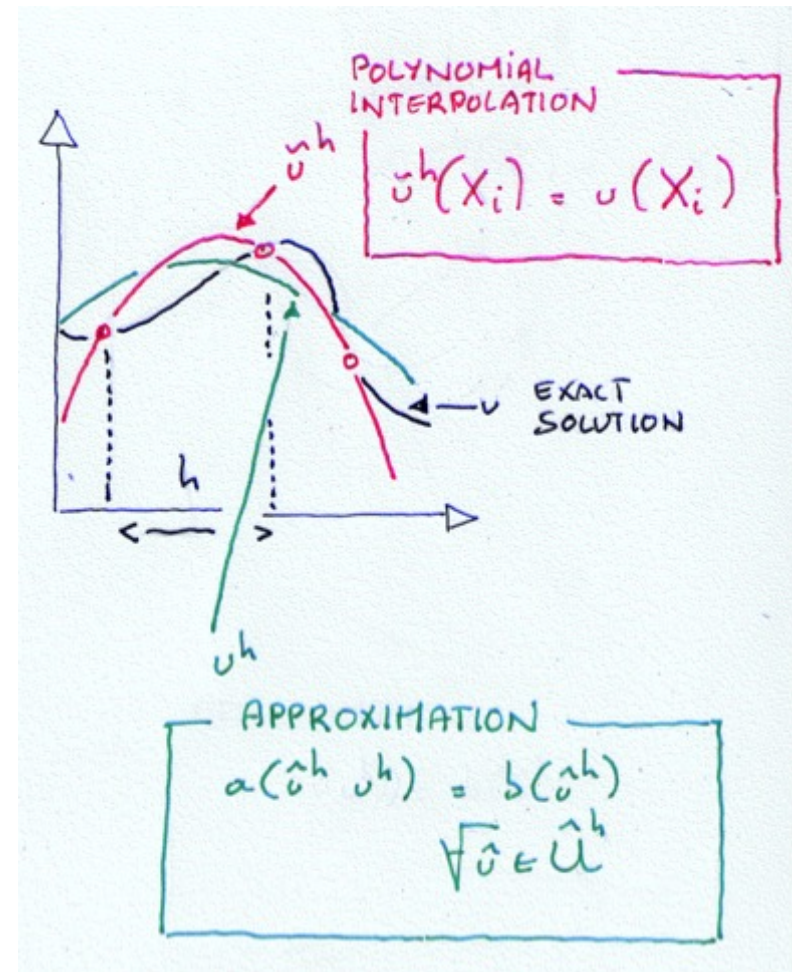 POLYNOMIAL
INTERPOLATION
ũʰ
ũʰ(Xᵢ) = u(Xᵢ)
h
u EXACT
SOLUTION
uʰ
APPROXIMATION
a(ûʰ uʰ) = b(ûʰ)
∀û ∈ Ûʰ